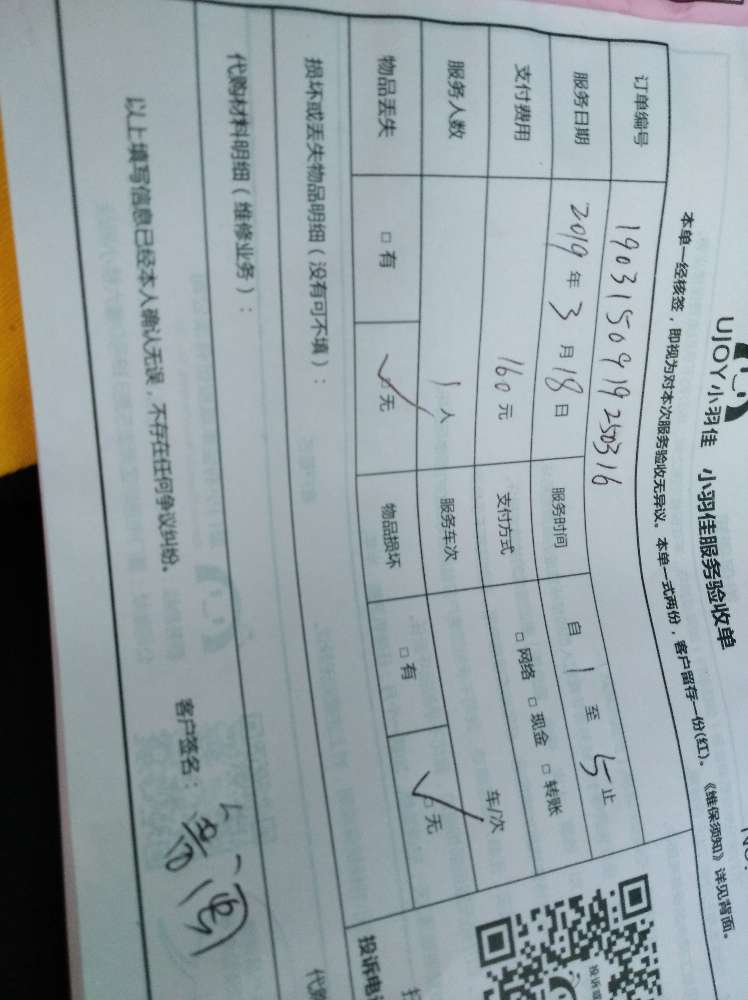 UJOY小羽佳 小羽佳服务验收单
本单一经核签，即视为对本次服务验收无异议。本单一式两份，客户留存一份(红)。《维保须知》详见背面。
订单编号 1903150919250316
服务日期 2019年3月18日 服务时间 自1至5止
支付费用 160元 支付方式 □网络 □现金 □转账
服务人数 1人 服务车次 车/次
物品丢失 □有 ☑无 物品损坏 □有 ☑无
损坏或丢失物品明细（没有可不填）：
代购材料明细（维修业务）： 代购
以上填写信息已经本人确认无误，不存在任何争议纠纷。
客户签名：
投诉电